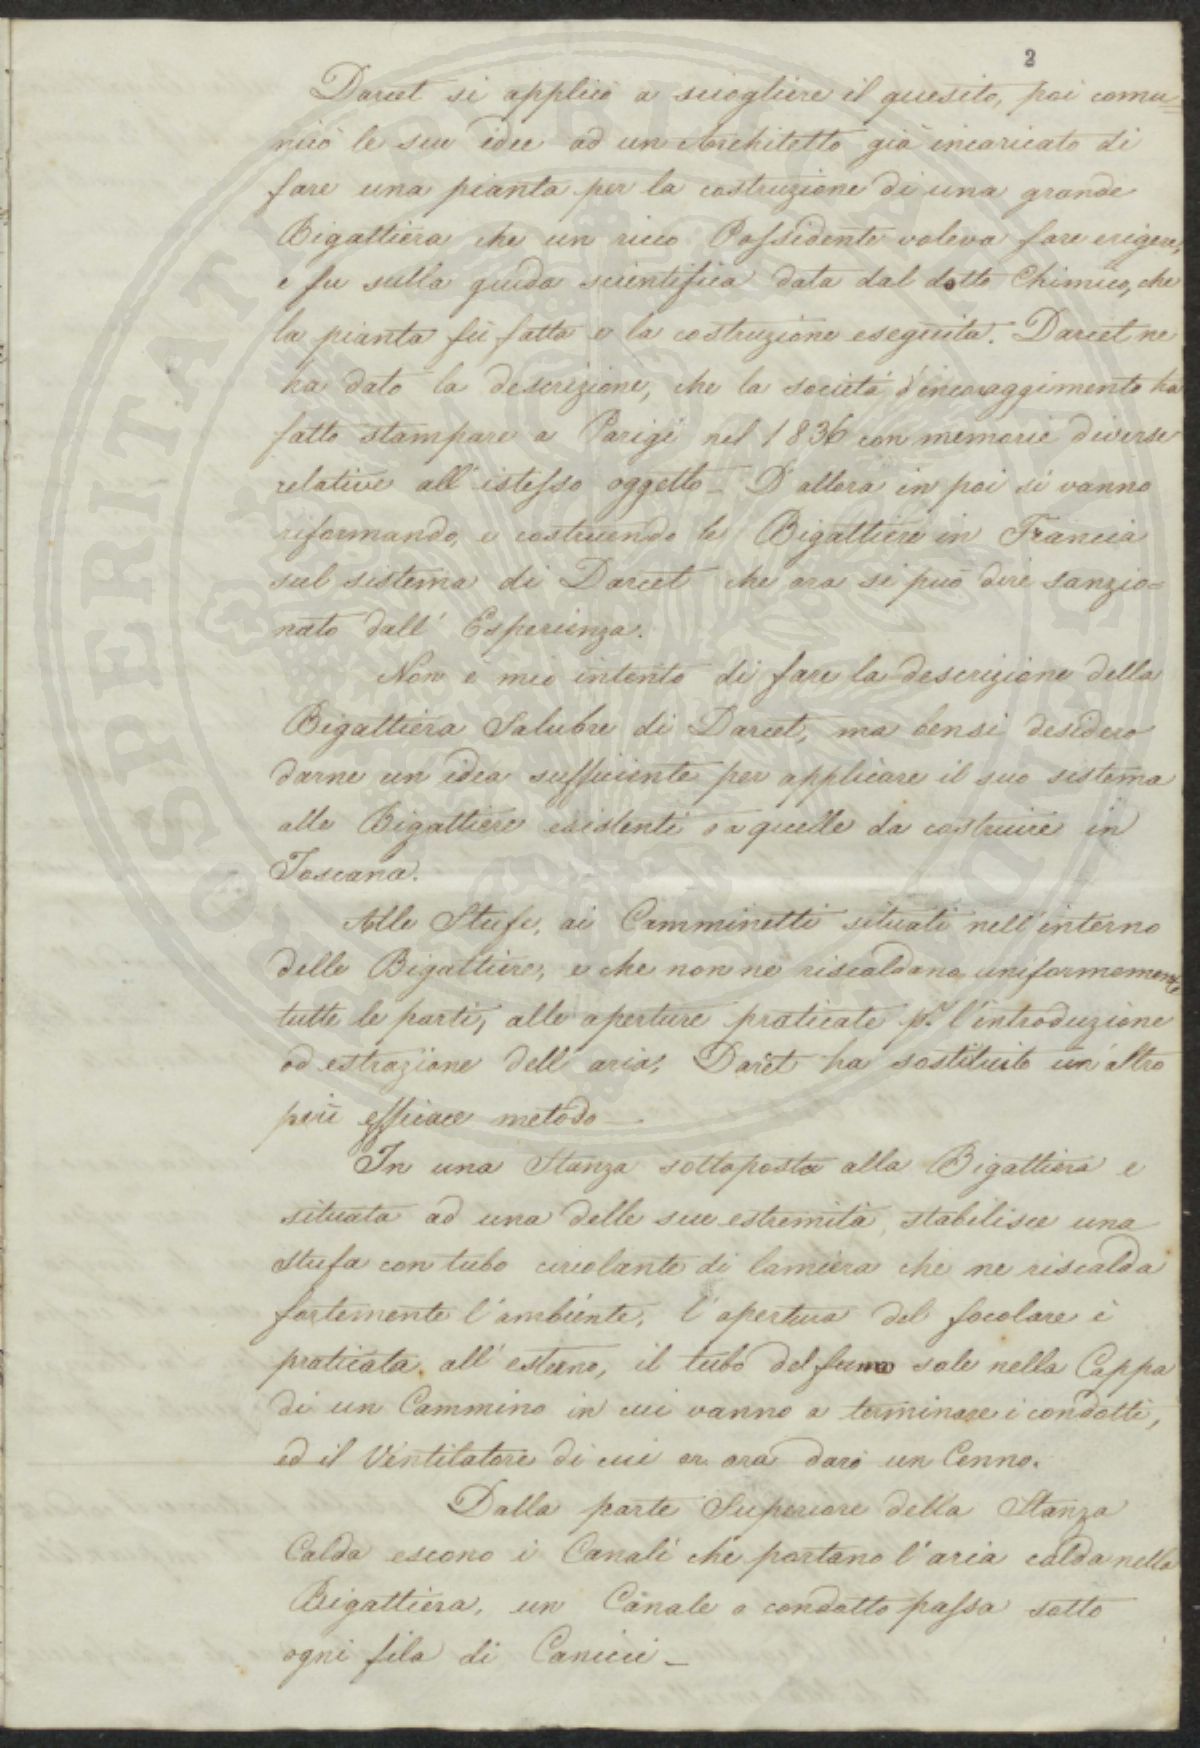 2
Darcet si applicò a sciogliere il quesito, poi comu=
nicò le sue idee ad un Architetto già incaricato di
fare una pianta per la costruzione di una grande
Bigattiera che un ricco Possidente voleva fare erigere,
e fu sulla guida scientifica data dal dotto Chimico, che
la pianta fù fatta e la costruzione eseguita. Darcet ne
ha dato la descrizione, che la società d'incoraggimento ha
fatto stampare a Parigi nel 1836 con memorie diverse
relative all'istesso oggetto_ D'allora in poi si vanno
riformando, e costruendo le Bigattiere in Francia
sul sistema di Darcet che ora si può dire sanzio=
nato dall'Esperienza.
Non è mio intento di fare la descrizione della
Bigattiera Salubre di Darcet, ma bensi desidero
darne un idea sufficiente per applicare il suo sistema
alle Bigattiere esistenti o a quelle da costruire in
Toscana.
Alle Stufe, ai Camminetti situati nell'interno
delle Bigattiere, e che non ne riscaldano uniformemente
tutte le parti, alle aperture praticate p. l'introduzione
ed estrazione dell'aria, Darcet ha sostituito un'altro
più efficace metodo_
In una Stanza sottoposta alla Bigattiera e
situata ad una delle sue estremità, stabilisce una
stufa con tubo circolante di lamiera che ne riscalda
fortemente l'ambiente, l'apertura del focolare è
praticata all'esterno, il tubo del fumo sale nella Cappa
di un Cammino in cui vanno a terminare i condotti,
ed il Ventilatore di cui or ora darò un Cenno.
Dalla parte Superiore della Stanza
Calda escono i Canali che portano l'aria calda nella
Bigattiera, un Canale o condotto passa sotto
ogni fila di Canicci_
POSPERITATI PUBLICAE AUGENDAE